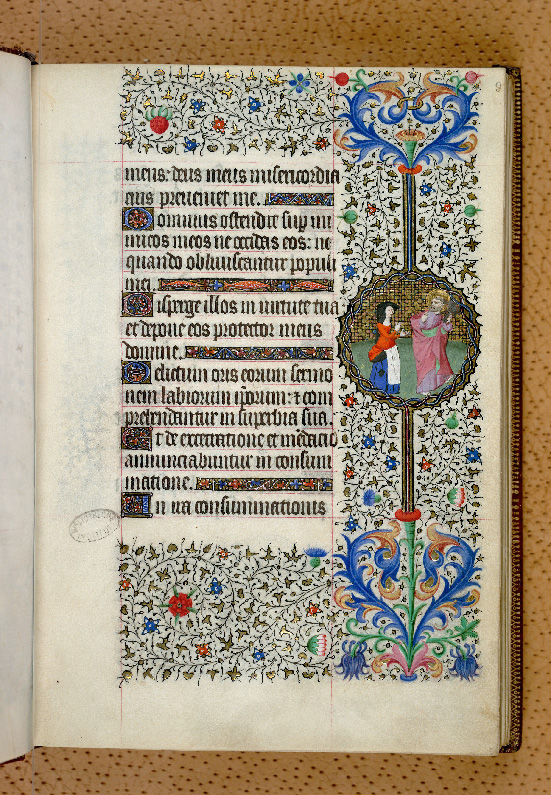 meus: deus meus misericordia
eius preueniet me.
Dominus ostendit sup ini
micos meos ne occidas eos: ne
quando obliuiscantur populi
mei.
Disperge illos in uirtute tua
et depone eos protector meus
domine.
Delictum oris eorum sermo
nem labiorum iporum: et com
prehendantur in superbia sua.
Et de execratione et mēdacio
annunciabuntur in consum
matione.
In ira consummationis